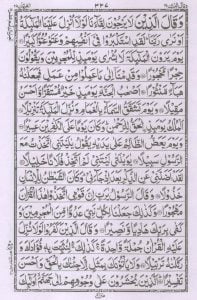 ٣٢٧
وَقَالَ الَّذِيْنَ لَا يَرْجُوْنَ لِقَآءَنَا لَوْلَآ اُنْزِلَ عَلَيْنَا الْمَلٰٓئِكَةُ
اَوْ نَرٰى رَبَّنَا لَقَدِ اسْتَكْبَرُوْا فِيْٓ اَنْفُسِهِمْ وَعَتَوْ عُتُوًّا كَبِيْرًا
يَوْمَ يَرَوْنَ الْمَلٰٓئِكَةَ لَا بُشْرٰى يَوْمَئِذٍ لِّلْمُجْرِمِيْنَ وَيَقُوْلُوْنَ
حِجْرًا مَّحْجُوْرًا وَقَدِمْنَآ اِلٰى مَا عَمِلُوْا مِنْ عَمَلٍ فَجَعَلْنٰهُ
هَبَآءً مَّنْثُوْرًا اَصْحٰبُ الْجَنَّةِ يَوْمَئِذٍ خَيْرٌ مُّسْتَقَرًّا وَّاَحْسَنُ
مَقِيْلًا وَيَوْمَ تَشَقَّقُ السَّمَآءُ بِالْغَمَامِ وَنُزِّلَ الْمَلٰٓئِكَةُ تَنْزِيْلًا
اَلْمُلْكُ يَوْمَئِذِ الْحَقُّ لِلرَّحْمٰنِ وَكَانَ يَوْمًا عَلَى الْكٰفِرِيْنَ عَسِيْرًا
وَيَوْمَ يَعَضُّ الظَّالِمُ عَلٰى يَدَيْهِ يَقُوْلُ يٰلَيْتَنِى اتَّخَذْتُ مَعَ
الرَّسُوْلِ سَبِيْلًا يٰوَيْلَتٰى لَيْتَنِيْ لَمْ اَتَّخِذْ فُلَانًا خَلِيْلًا
لَقَدْ اَضَلَّنِيْ عَنِ الذِّكْرِ بَعْدَ اِذْ جَآءَنِيْ وَكَانَ الشَّيْطٰنُ لِلْاِنْسَانِ
خَذُوْلًا وَقَالَ الرَّسُوْلُ يٰرَبِّ اِنَّ قَوْمِى اتَّخَذُوْا هٰذَا الْقُرْاٰنَ
مَهْجُوْرًا وَكَذٰلِكَ جَعَلْنَا لِكُلِّ نَبِيٍّ عَدُوًّا مِّنَ الْمُجْرِمِيْنَ وَ
كَفٰى بِرَبِّكَ هَادِيًا وَّنَصِيْرًا وَقَالَ الَّذِيْنَ كَفَرُوْا لَوْلَا نُزِّلَ
عَلَيْهِ الْقُرْاٰنُ جُمْلَةً وَّاحِدَةً كَذٰلِكَ لِنُثَبِّتَ بِهٖ فُؤَادَكَ وَ
رَتَّلْنٰهُ تَرْتِيْلًا وَلَا يَاْتُوْنَكَ بِمَثَلٍ اِلَّا جِئْنٰكَ بِالْحَقِّ وَاَحْسَنَ
تَفْسِيْرًا اَلَّذِيْنَ يُحْشَرُوْنَ عَلٰى وُجُوْهِهِمْ اِلٰى جَهَنَّمَ اُولٰٓئِكَ